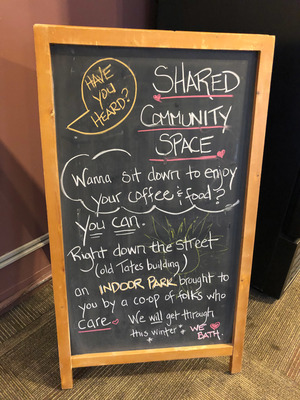 HAVE
YOU
HEARD?
SHARED
COMMUNITY
SPACE
Wanna sit down to enjoy
your coffee & food?
YOU CAN.
Right down the street
(old Tates building)
an INDOOR PARK brought to
you by a co-op of folks who
care. We will get through
this winter. WE
BATH.